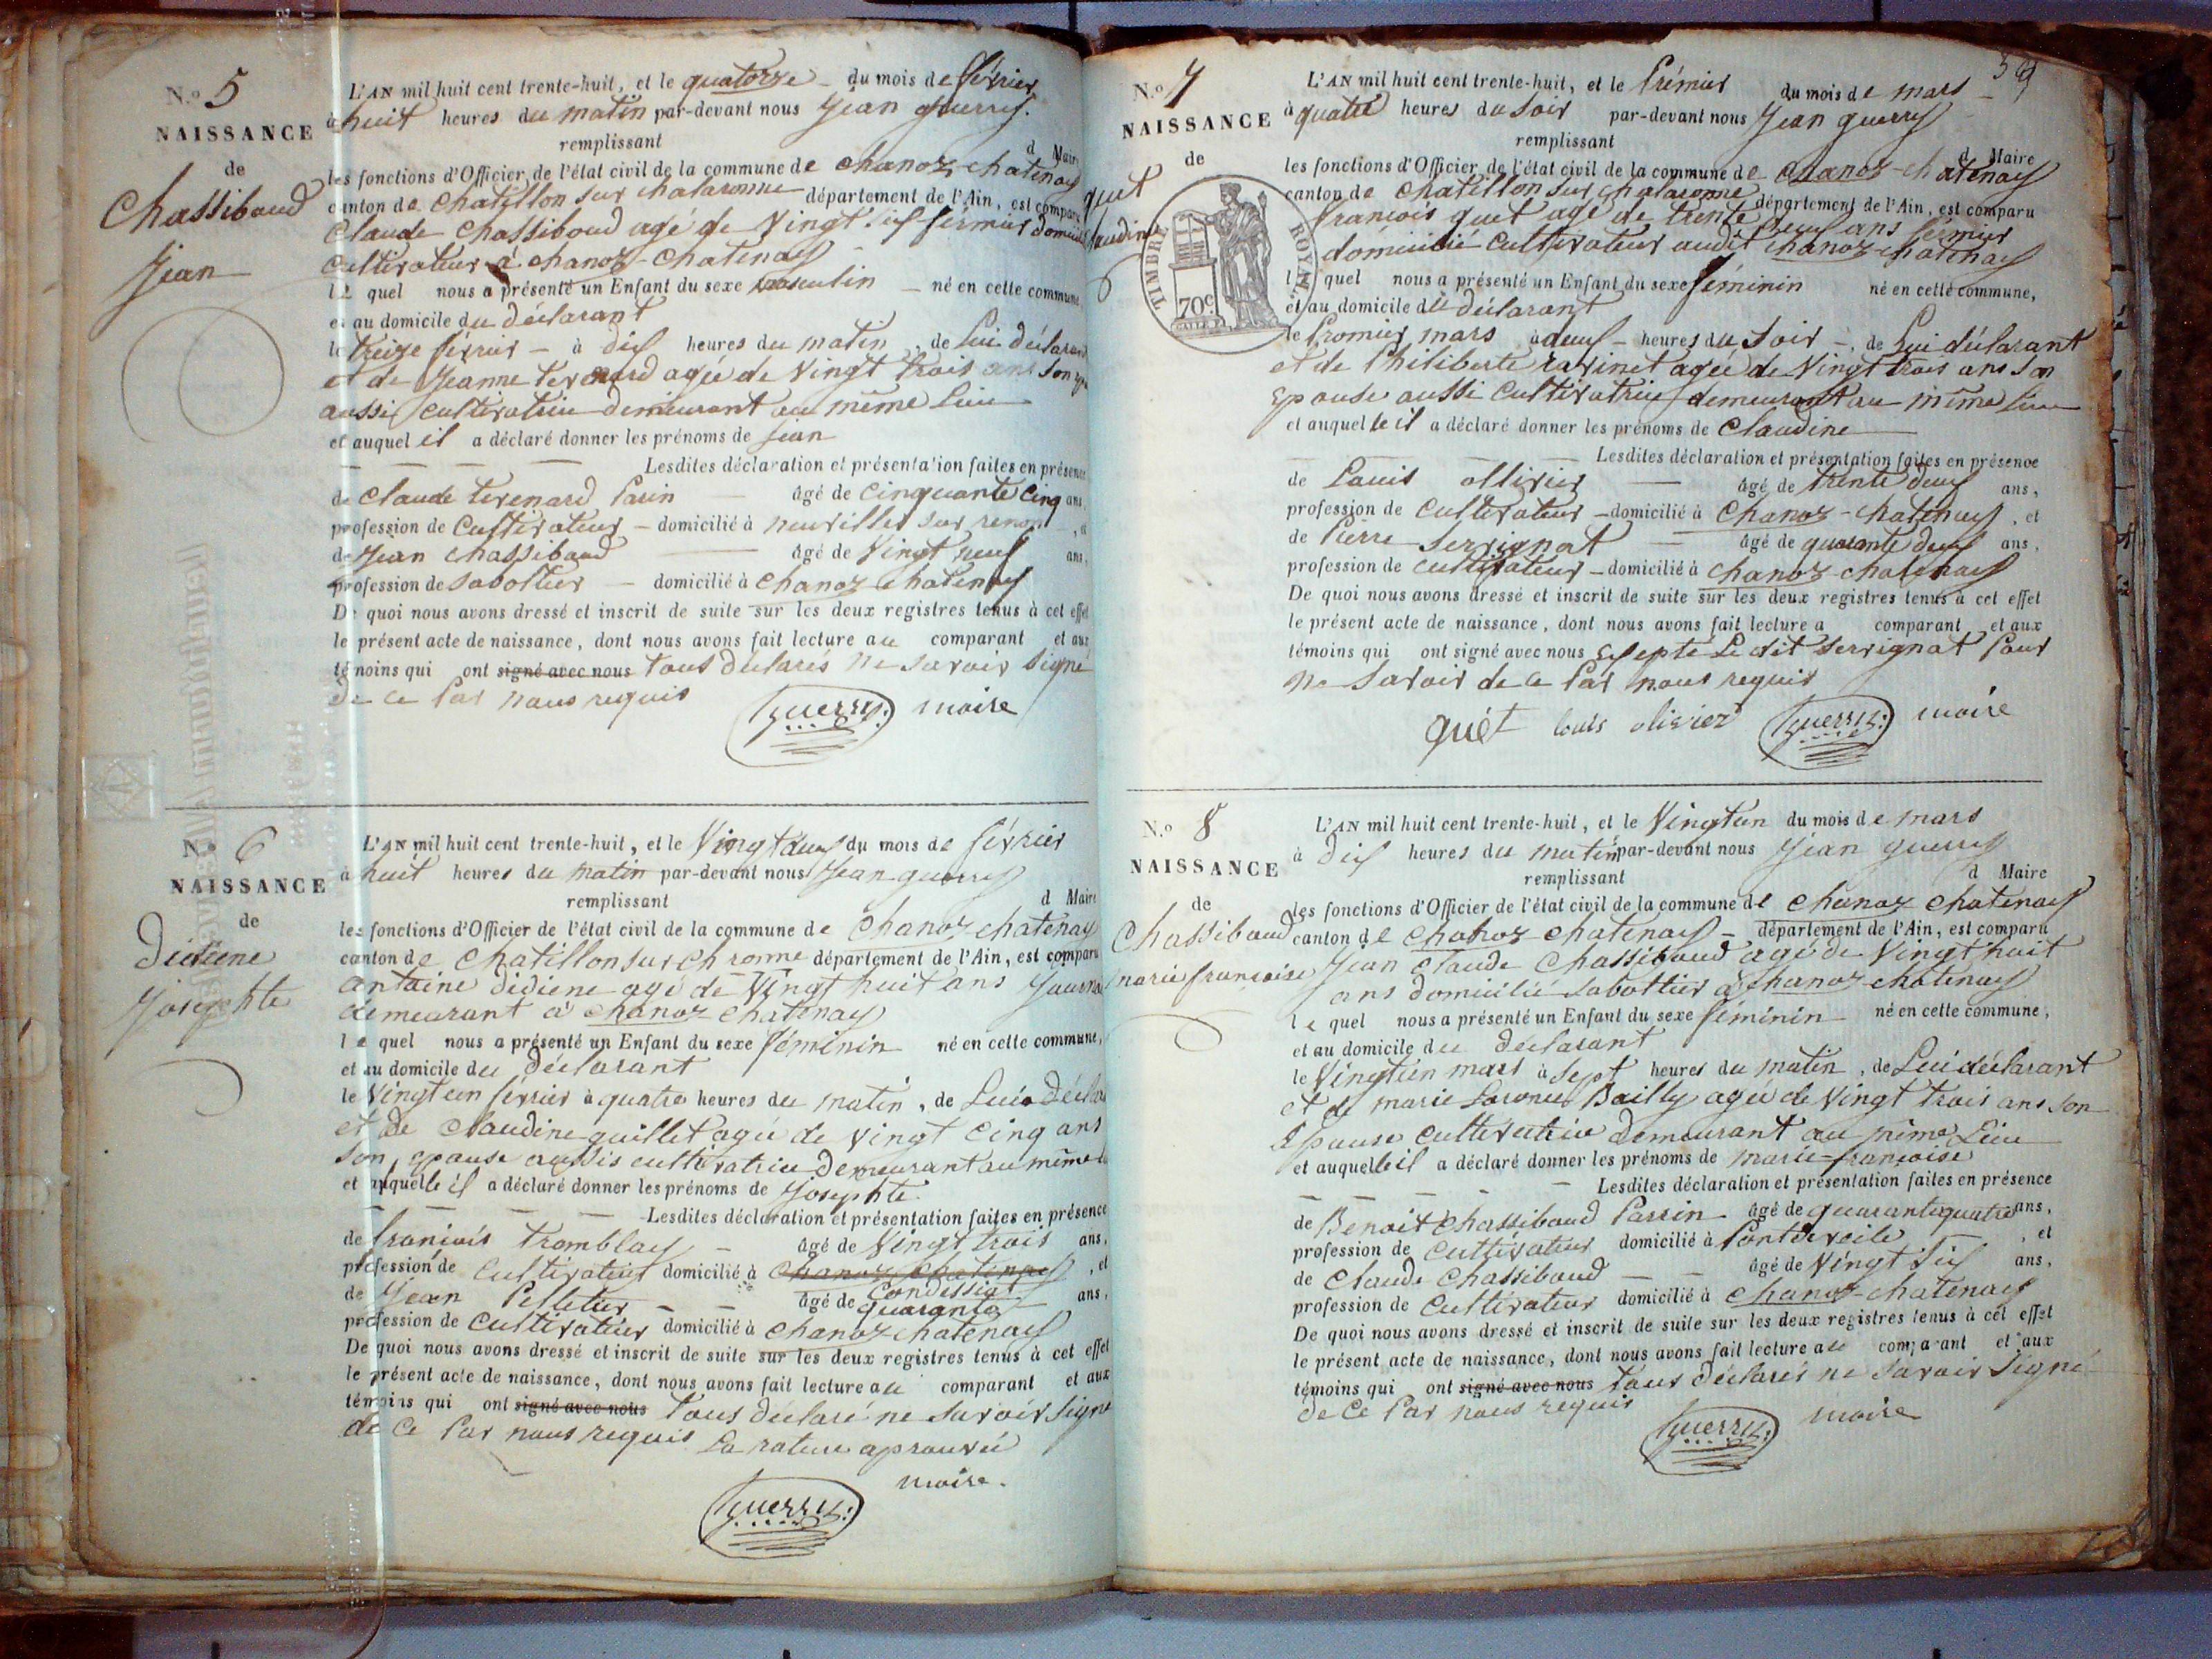 N.o 5
NAISSANCE
de
Chassiboud
Jean
L'AN mil huit cent trente-huit, et le quatorze du mois de février
à huit heures du matin par-devant nous Jean guerry
remplissant d Maire
les fonctions d'Officier de l'état civil de la commune de chanoz-chatenay
canton de chatillon sur chalaronne département de l'Ain, est comparu
Claude Chassiboud agé de Vingt six fermier domicilié
Cultivateur à chanoz-chatenay
le quel nous a présenté un Enfant du sexe masculin né en cette commune,
et au domicile du déclarant
le treize février à dix heures du matin, de Lui déclarant
et de Jeanne Tevenard agée de Vingt trois ans Son
aussi cultivatrice demeurant au même lieu
et auquel il a déclaré donner les prénoms de jean
Lesdites déclaration et présentation faites en présence
de Claude Tevenard Parin âgé de Cinquante cinq ans
profession de Cultivateur domicilié à neuvilles sur renon
de Jean Chassiboud âgé de Vingt neuf ans,
profession de Sabottier domicilié à Chanoz chatenay
De quoi nous avons dressé et inscrit de suite sur les deux registres tenus à cet effet
le présent acte de naissance, dont nous avons fait lecture au comparant et aux
témoins qui ont signé avec nous tous déclarés ne savoir signe
de ce Par nous requis
guerry. maire
N.o 6
NAISSANCE
de
Didiene
Josephte
L'AN mil huit cent trente-huit, et le Vingt deux du mois de février
à huit heures du matin par-devant nous Jean guerry
remplissant d Maire
les fonctions d'Officier de l'état civil de la commune de Chanoz chatenay
canton de Chatillon sur ch ronne département de l'Ain, est comparu
antoine didiene agé de Vingt huit ans
demeurant à chanoz chatenay
le quel nous a présenté un Enfant du sexe féminin né en cette commune,
et au domicile du déclarant
le Vingt un février à quatre heures du matin, de Lui
et de Claudine guillet agée de vingt cinq ans
Son epouse aussis cultivatrice demeurant au même
et auquelle il a déclaré donner les prénoms de Josephte
Lesdites déclaration et présentation faites en présence
de françois Tromblay âgé de Vingt trois ans,
profession de Cultivateur domicilié à chanoz chatenay, et
Condessiat
de Jean Pelletier âgé de quarante ans,
profession de Cultivateur domicilié à chanoz chatenay
De quoi nous avons dressé et inscrit de suite sur les deux registres tenus à cet effet
le présent acte de naissance, dont nous avons fait lecture au comparant et aux
témoins qui ont signé avec nous tous déclaré ne savoir signe
de ce Par nous requis La rature aprouvée
maire.
guerry.
59
N.o 7
NAISSANCE
de
quet
Claudine
TIMBRE ROYAL
70c
L'AN mil huit cent trente-huit, et le Prémier du mois de mars
à quatre heures du soir par-devant nous Jean guerry
remplissant d Maire
les fonctions d'Officier de l'état civil de la commune de Chanoz-chatenay
canton de Chatillon sur chalaronne département de l'Ain, est comparu
françois quet agé de trente neuf ans fermier
domicilié cultivateur audit chanoz-chatenay
l quel nous a présenté un Enfant du sexe féminin né en cette commune,
et au domicile du déclarant
le Promier mars à deux heures du Soir, de Lui déclarant
et de Philiberte ravinet agée de Vingt trois ans Son
Epouse aussi cultivatrice demeurant au même lieu
et auquelle il a déclaré donner les prénoms de Claudine
Lesdites déclaration et présentation faites en présence
de Louis ollivier âgé de trente deux ans,
profession de Cultivateur domicilié à Chanoz-chatenay, et
de Pierre Serrignat âgé de quarante deux ans,
profession de Cultivateur domicilié à chanoz-chatenay
De quoi nous avons dressé et inscrit de suite sur les deux registres tenus à cet effet
le présent acte de naissance, dont nous avons fait lecture a comparant et aux
témoins qui ont signé avec nous Ecepté Le dit Serrignat Pour
ne Savoir de ce Par nous requis
quét louis olivier guerry. maire
N.o 8
NAISSANCE
de
Chassiboud
marie françoise
L'AN mil huit cent trente-huit, et le Vingt un du mois de mars
à dix heures du matin par-devant nous Jean guerry
remplissant d Maire
les fonctions d'Officier de l'état civil de la commune de Chanoz chatenay
canton de Chanoz chatenay département de l'Ain, est comparu
Jean Claude Chassiboud agé de Vingt huit
ans domicilié Sabottier à chanoz-chatenay
le quel nous a présenté un Enfant du sexe féminin né en cette commune,
et au domicile du déclarant
le Vingt un mars à sept heures du matin, de Lui déclarant
et de marie Bailly agée de Vingt trois ans Son
Epouse cultivatrice demeurant au même Lieu
et auquelle il a déclaré donner les prénoms de marie-françoise
Lesdites déclaration et présentation faites en présence
de Benoit Chassiboud Parrin âgé de quarante quatre ans,
profession de Cultivateur domicilié à Pontdeveile, et
de Claude Chassiboud âgé de Vingt Six ans,
profession de Cultivateur domicilié à Chanoz-chatenay
De quoi nous avons dressé et inscrit de suite sur les deux registres tenus à cet effet
le présent acte de naissance, dont nous avons fait lecture au comparant et aux
témoins qui ont signé avec nous tous déclarés ne savoir Signé
de ce Par nous requis
guerry. maire